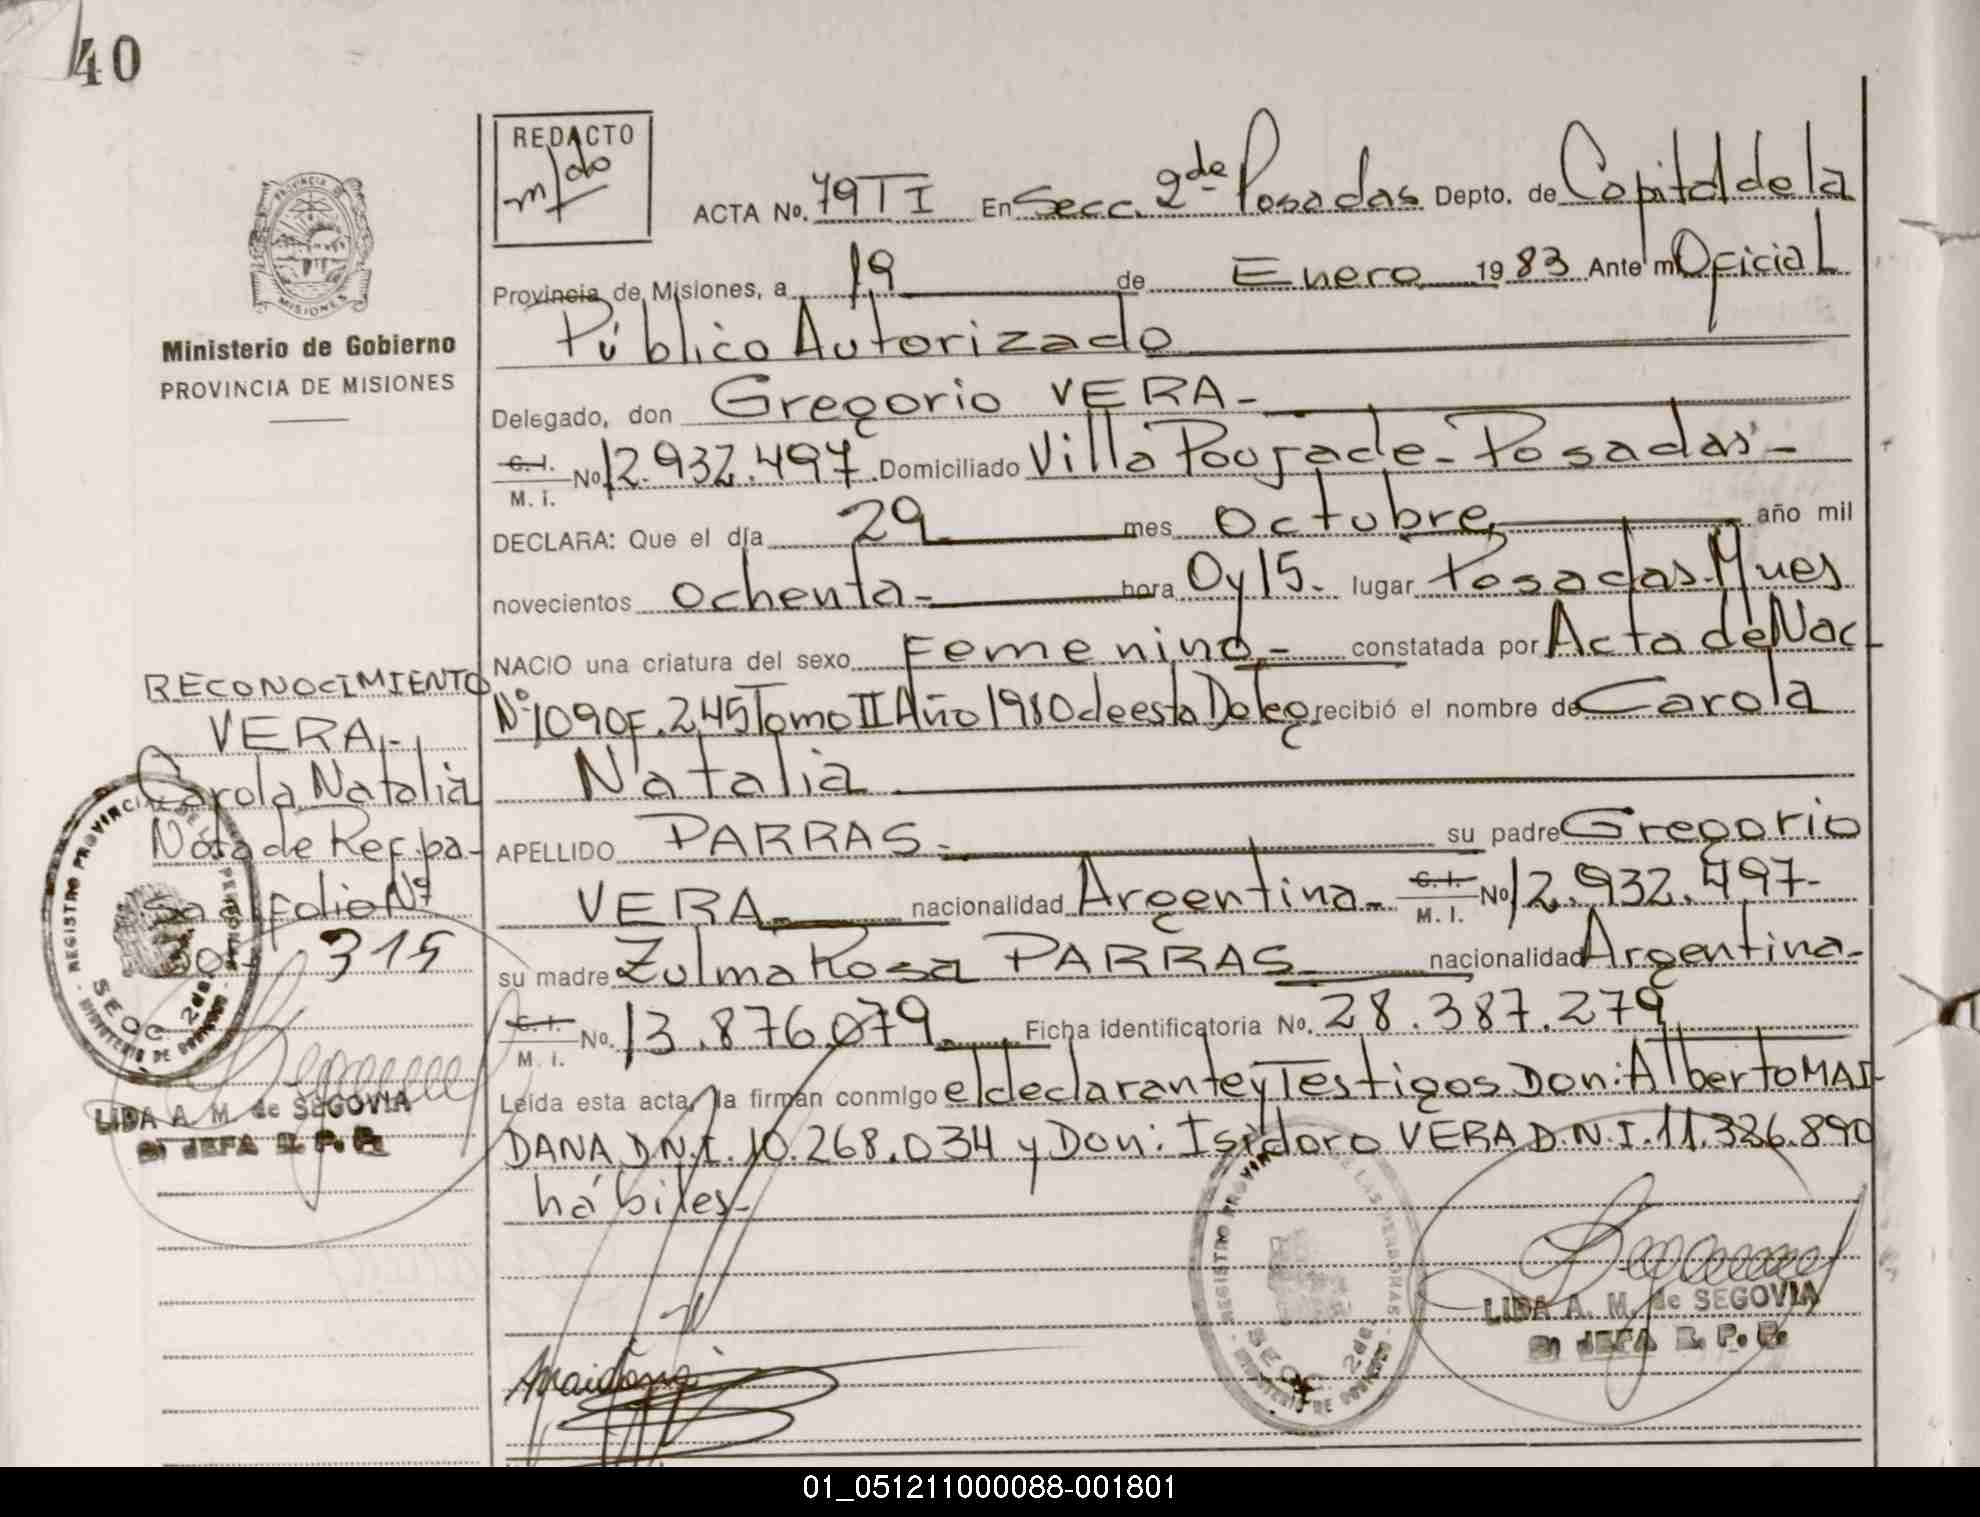 40
REDACTO
m/do
ACTA No. 79 T I En Secc. 2da Posadas Depto. de Capital de la
Provincia de Misiones, a 19 de Enero 1983 Ante mí Oficial
Público Autorizado
Delegado, don Gregorio VERA-
C. I. M. I. No 12.932.497 Domiciliado Villa Poujade - Posadas -
DECLARA: Que el día 29 mes octubre año mil
novecientos ochenta - hora 0 y 15. lugar Posadas. Mnes
NACIO una criatura del sexo Femenino - constatada por Acta de Nac
Nº 1090 F. 245 Tomo II Año 1980 de esta Deleg. recibió el nombre de Carola
Natalia
APELLIDO PARRAS. su padre Gregorio
VERA nacionalidad Argentina - C. I. M. I. No 12.932.497-
su madre Zulma Rosa PARRAS nacionalidad Argentina -
C. I. M. I. No. 13.876.079. Ficha identificatoria No. 28.387.279
Leída esta acta, la firman conmigo el declarante y Testigos Don: Alberto MAI-
DANA D.N.I. 10.268.034 y Don: Isidoro VERA D.N.I. 11.326.890
hábiles-
PROVINCIA DE MISIONES
Ministerio de Gobierno
PROVINCIA DE MISIONES
RECONOCIMIENTO
VERA-
Carola Natalia
Nota de Ref. pa-
sa al folio Nº
315
REGISTRO PROVINCIAL DE LAS PERSONAS
SECC. 2da.
MINISTERIO DE GOBIERNO
LIDA A. M. de SEGOVIA
JEFA R. P. P.
REGISTRO PROVINCIAL DE LAS PERSONAS
SECC. 2da.
MINISTERIO DE GOBIERNO
LIDA A. M. de SEGOVIA
JEFA R. P. P.
01_051211000088-001801